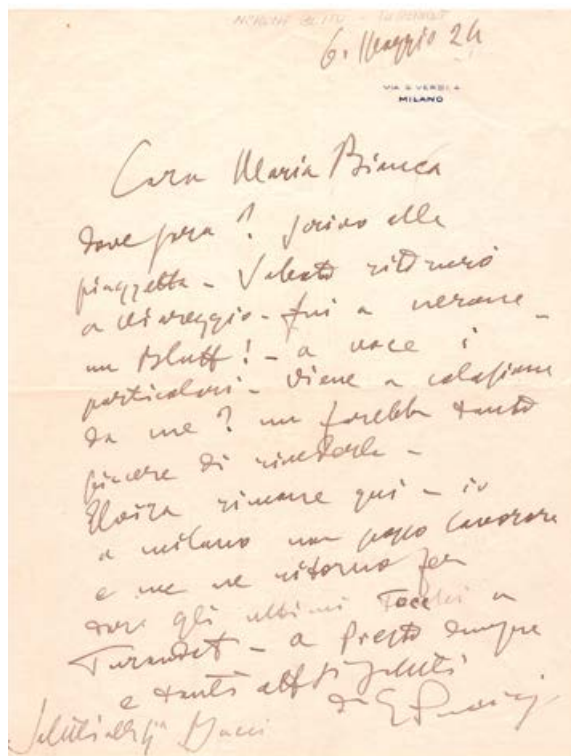 6. Maggio 24
VIA G VERDI 4
MILANO
Cara Maria Bianca
dove sarà? scrivo alla
piazzetta - Sabato ritornerò
a Viareggio - fui a nerone -
un bluff! - a voce i
particolari - Viene a colazione
da me? mi farebbe tanto
piacere di rivederla -
Elvira rimane qui - io
a milano non posso lavorare
e me ne ritorno per
dare gli ultimi tocchi a
Turandot - a presto dunque
e tanti aff saluti
da G Puccini
Saluti